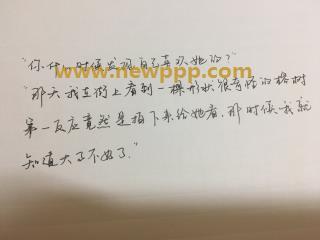 www.newppp.com
"你什么时候发现自己喜欢她的?"
"那天我在街上看到一棵形状很奇怪的榕树
第一反应竟然是拍下来给她看,那时候我就
知道大事不好了."